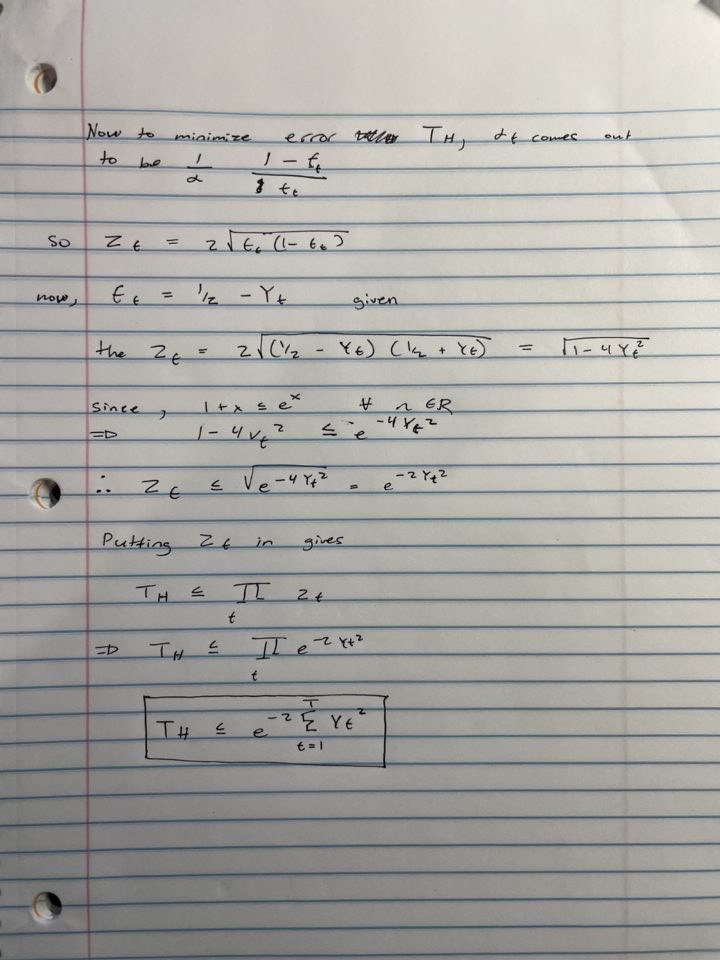 Now to minimize error T_H, α_t comes out
to be 1/α (1 - ϵ_t)/ϵ_t
so Z_t = 2√(ϵ_t (1 - ϵ_t))
now, ϵ_t = 1/2 - γ_t given
the Z_t = 2√((1/2 - γ_t) (1/2 + γ_t)) = √(1 - 4γ_t²)
since, 1 + x ≤ e^x ∀ n ∈ R
⇒ 1 - 4γ_t² ≤ e^(-4γ_t²)
∴ Z_t ≤ √(e^(-4γ_t²)) = e^(-2γ_t²)
Putting Z_t in gives
T_H ≤ ∏_t Z_t
⇒ T_H ≤ ∏_t e^(-2γ_t²)
T_H ≤ e^(-2 ∑_{t=1}^{T} γ_t²)